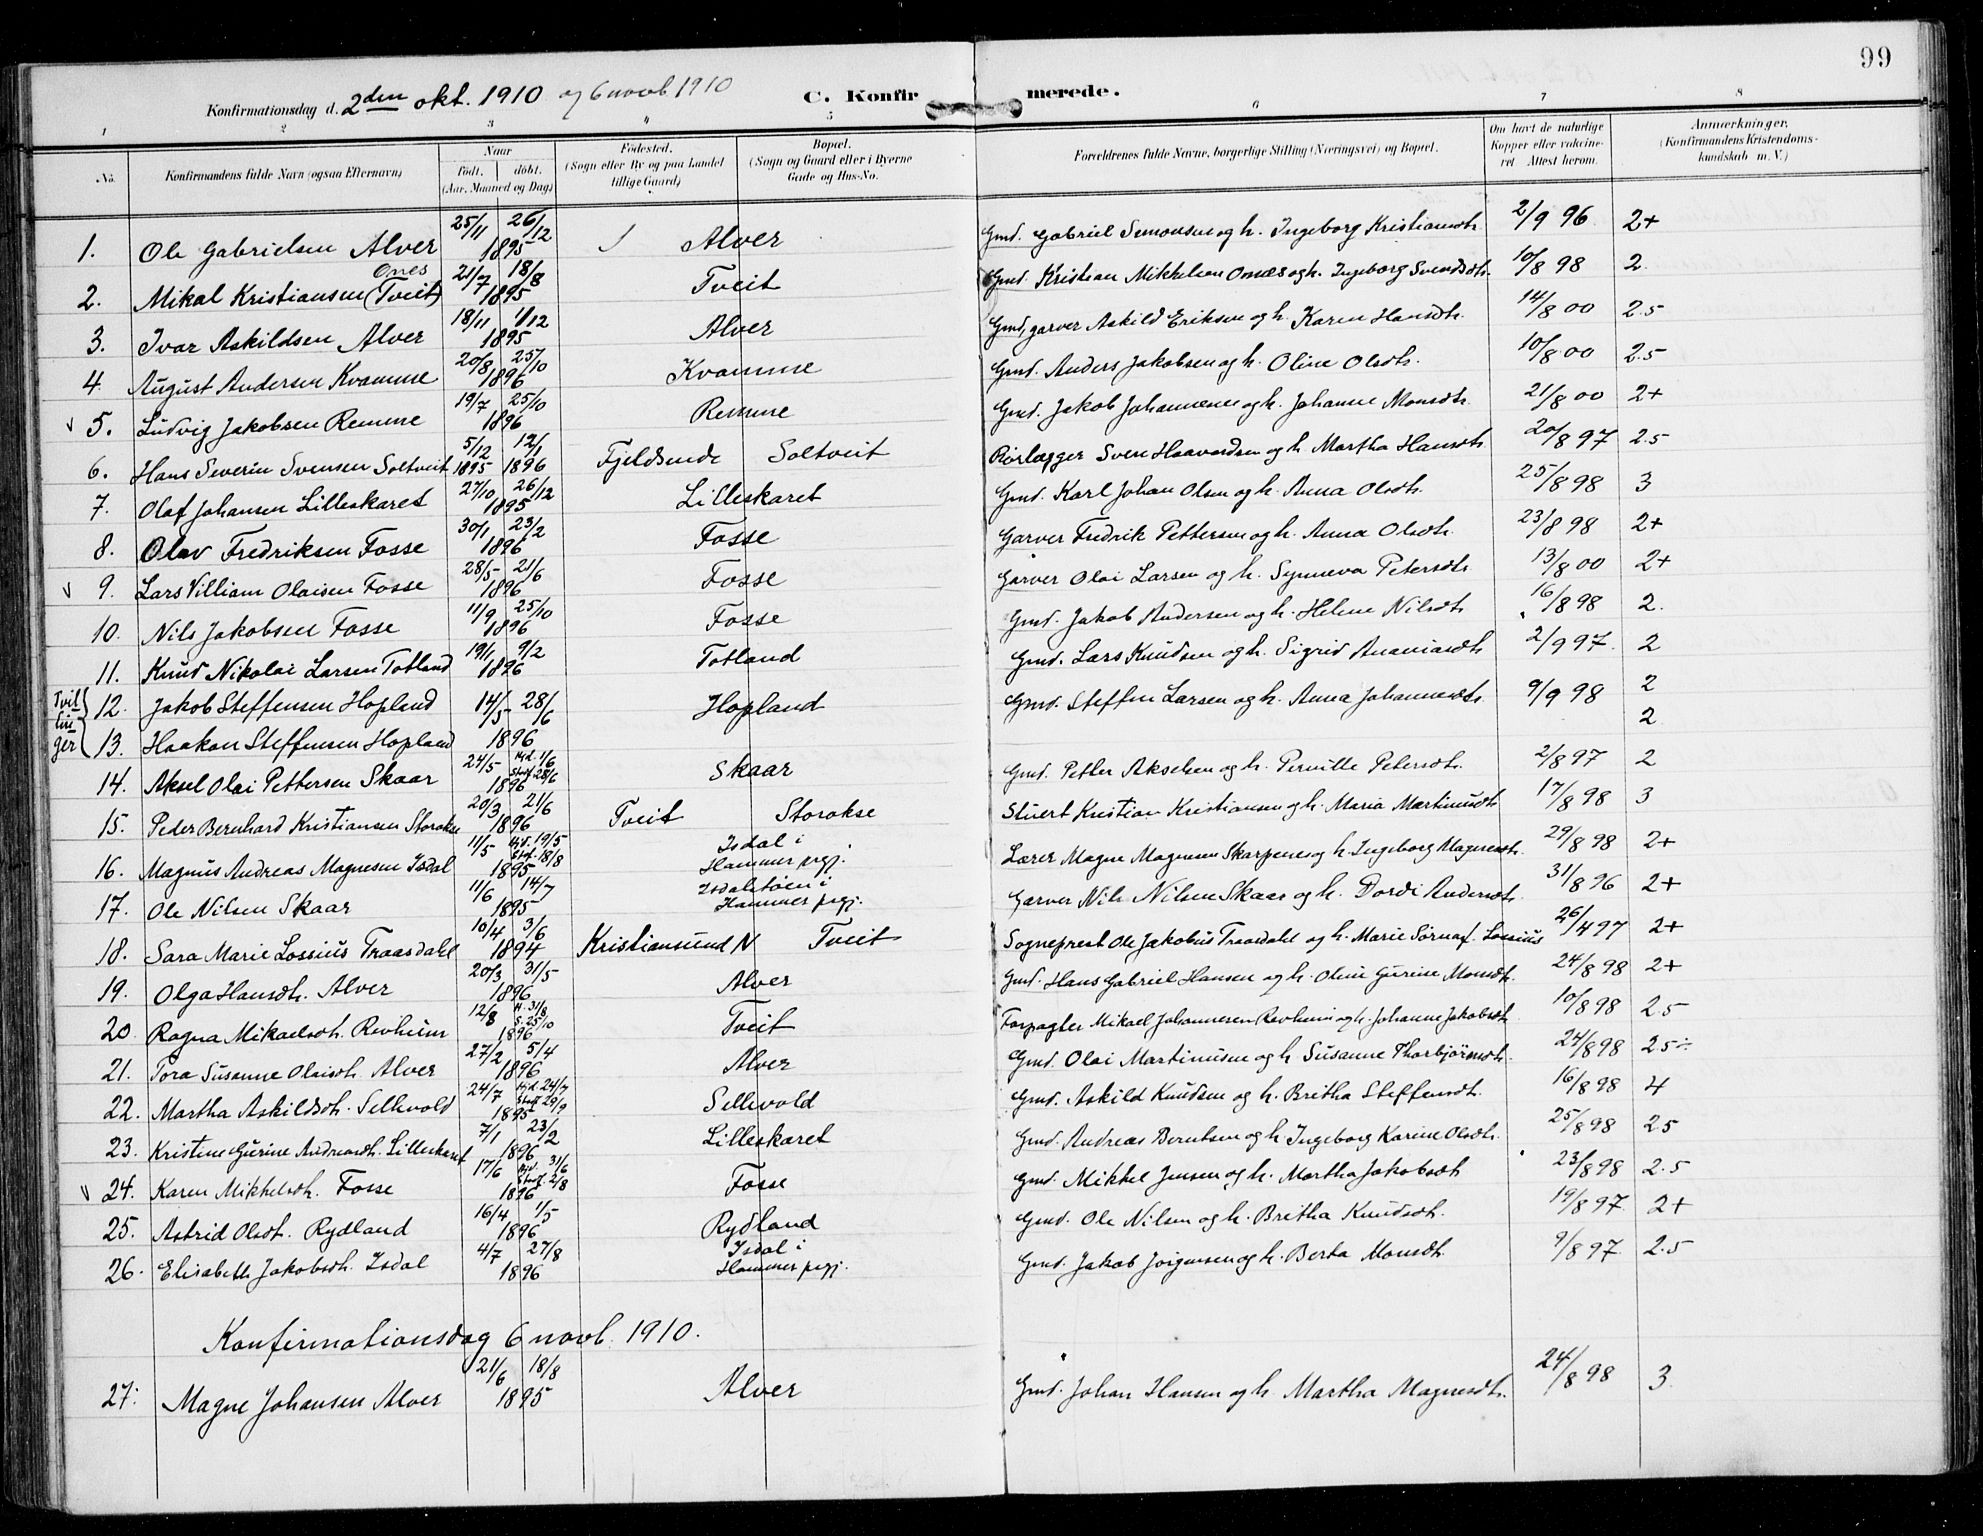 99
Konfirmationsdag d. 2den okt. 1910 og 6 novb 1910 C. Konfirmerede.
1 2 3 4 5 6 7 8
No. Konfirmandens fulde Navn (ogsaa Efternavn) Naar født. døbt. (Aar. Maaned og Dag) Fødested. (Sogn eller By og paa Landet tillige Gaard) Bopæl. (Sogn og Gaard eller i Byerne Gade og Hus-No. Forældrenes fulde Navne, borgerlige Stilling (Næringsvei) og Bopæl. Om havt de naturlige Kopper eller vaccineret. Attest herom. Anmærkninger. (Konfirmandens Kristendomskundskab m. V.)
1. Ole Gabrielsen Alver 25/11 26/12 1895 Alver Gmd. Gabriel Simonsen og h. Ingeborg Kristiansdt. 2/9 96 2+
2. Mikal Kristiansen (Tveit) Ones 21/7 18/8 1895 Tveit Gmd. Kristian Mikkelsen Onæs og h. Ingeborg Svendsdt. 10/8 98 2.
3. Ivar Askildsen Alver 18/11 1/12 1895 Alver Gmd, garver Askild Eriksen og h. Karen Hansdt. 14/8 00 2.5
4. August Andersen Kvamme 20/8 25/10 1896 Kvamme Gmd. Anders Jakobsen og h. Oline Olsdt. 10/8 00 2.5
5. Ludvig Jakobsen Remme 19/7 25/10 1896 Remme Gmd. Jakob Johannesen og h. Johanne Monsdt. 21/8 00 2+
6. Hans Severin Svensen Soltveit 5/12 1895 12/1 1896 Fjeldsende Soltveit Rørlægger Sven Haavardsen og h Martha Hansdt. 20/8 97 2.5
7. Olaf Johansen Lilleskaret 27/10 26/12 1895 Lilleskaret Gmd. Karl Johan Olsen og h. Anna Olsdt. 25/8 98 3
8. Olav Fredriksen Fosse 30/1 23/2 1896 Fosse Garver Fredrik Pettersen og h. Anna Olsdt. 23/8 98 2+
9. Lars Villiam Olaisen Fosse 28/5 21/6 1896 Fosse Garver Olai Larsen og h. Synneva Petersdt. 13/8 00 2+
10. Nils Jakobsen Fosse 11/9 25/10 1896 Fosse Gmd. Jakob Andersen og h. Helene Nilsdt. 16/8 98 2.
11. Knud Nikolai Larsen Totland 19/1 9/2 1896 Totland Gmd. Lars Knudsen og h. Sigrid Ananiasdt. 2/9 97. 2
Tvillinger
12. Jakob Steffensen Hopland 14/5 28/6 Hopland Gmd. Steffen Larsen og h. Anna Johannesdt. 9/9 98 2
13. Haakon Steffensen Hopland 1896 2
14. Aksel Olai Pettersen Skaar 24/5 Hjd. 1/6 Stad. 28/6 1896 Skaar Gmd. Petter Akselsen og h. Pernille Petersdt. 2/8 97 2
15. Peder Bernhard Kristiansen Storakse 20/3 21/6 1896 Tveit Storakse Stuert Kristian Kristiansen og h. Maria Martinusdt 17/8 98 3
16. Magnus Andreas Magnesen Isdal 11/5 Hjd. 19/5 Stad. 18/8 1895 Isdal i Hammer prgj. Lærer Magne Magnesen Skarpenes og h. Ingeborg Magnesdt. 29/8 98 2+
17. Ole Nilsen Skaar 11/6 14/7 1895 Isdalstøen i Hammer prgj. Garver Nils Nilsen Skaar og h. Dordi Andersdt. 31/8 96 2+
18. Sara Marie Lossius Traasdahl 10/4 3/6 1894 Kristiansund N Tveit Sogneprest Ole Jakobus Traasdahl og h. Marie Sørna f. Lossius 26/4 97 2+
19. Olga Hansdt. Alver 20/3 31/5 1896 Alver Gmd. Hans Gabriel Hansen og h. Oline Gurine Monsdt. 24/8 98 2+
20. Ragna Mikaelsdt. Revheim 12/8 H. 31/8 S. 25/10 1896 Tveit Forpagter Mikael Johannesen Revheim og h. Johanne Jakobsdt. 10/8 98 2.5
21. Tora Susanne Olaisdt. Alver 27/2 5/4 1896 Alver Gmd. Olai Martinusen og h Susanne Thorbjörnsdt. 24/8 98 2.5÷
22. Martha Askildsdt. Sellevold 24/7 Hjd. 24/7 Stad. 29/9 1895 Sellevold Gmd. Askild Knudsen og h. Britha Steffensdt. 16/8 98 4
23. Kristine Gurine Andreasdt. Lilleskaret 7/1 23/2 1896 Lilleskaret Gmd. Andreas Berntsen og h. Ingeborg Karine Olsdt. 25/8 98 2.5
24. Karen Mikkelsdt. Fosse 17/6 Hjd. 31/6 Stad. 2/8 1896 Fosse Gmd. Mikkel Jensen og h. Martha Jakobsdt 23/8 98 2.5
25. Astrid Olsdt. Rydland 16/4 1/5 1896 Rydland Gmd. Ole Nilsen og h. Britha Knudsdt. 19/8 97. 2+
26. Elisabeth Jakobsdt. Isdal 4/7 27/8 1896 Isdal i Hammer prgj. Gmd. Jakob Jörgensen og h. Berta Monsdt. 9/8 97 2.5
Konfirmationsdag 6 novb. 1910.
27. Magne Johansen Alver 21/6 18/8 1895 Alver Gmd. Johan Hansen og h. Martha Magnesdt. 24/8 98 3.